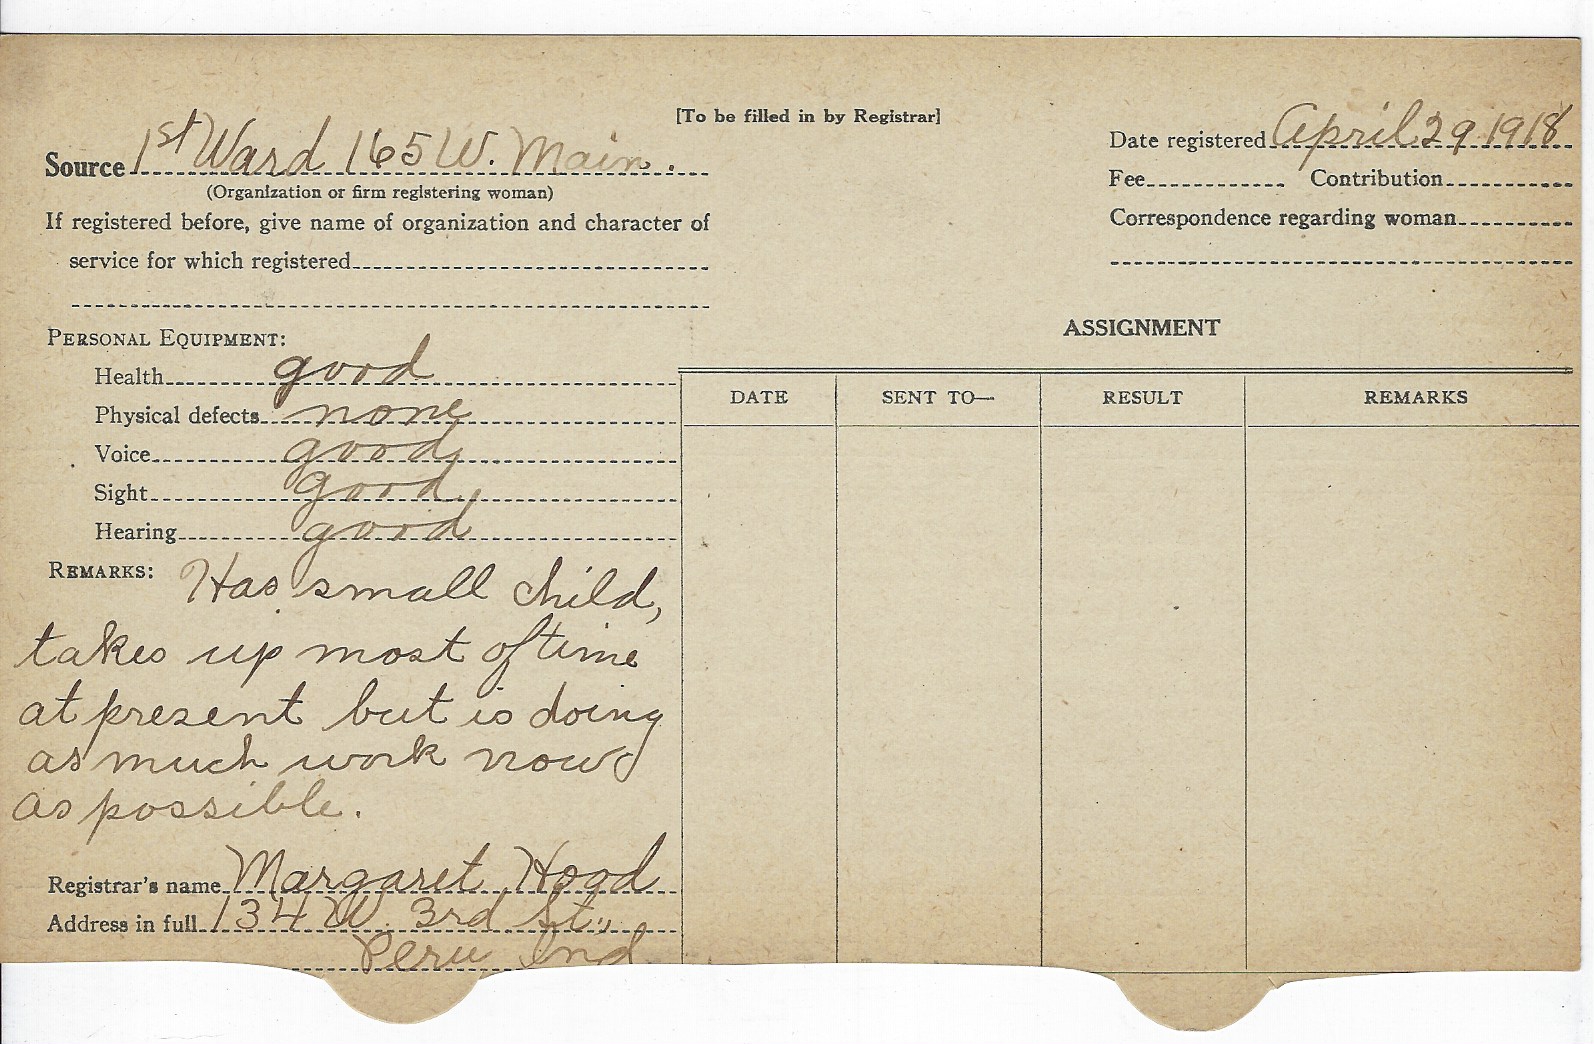 [To be filled in by Registrar]
Source 1st Ward 165 W. Main.
(Organization or firm registering woman)
If registered before, give name of organization and character of
service for which registered
Date registered April 29 1918
Fee Contribution
Correspondence regarding woman
PERSONAL EQUIPMENT:
Health good
Physical defects none
Voice good
Sight good
Hearing good
REMARKS: Has small child,
takes up most of time
at present but is doing
as much work now
as possible.
Registrar's name Margaret Hood
Address in full 134 W. 3rd St.,
Peru Ind
ASSIGNMENT
DATE SENT TO— RESULT REMARKS